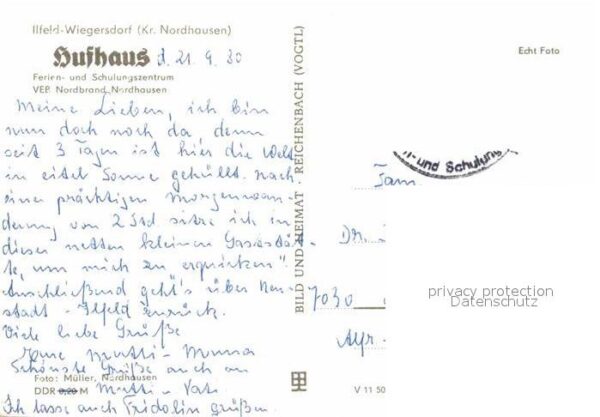 Ilfeld-Wiegersdorf (Kr. Nordhausen)
Hufhaus d. 21. 9. 80
Ferien- und Schulungszentrum
VEB Nordbrand Nordhausen
Meine Lieben, ich bin
nun doch noch da, denn
seit 3 Tagen ist hier die Welt
in eitel Sonne gehüllt. Nach
einer prächtigen Morgenwan-
derung von 2 Std sitze ich in
dieser netten kleinen Gaststät-
te, um mich zu erquicken".
Anschließend geht's über Neu-
stadt - Ilfeld zurück.
Viele liebe Grüße
Eure Mutti-Mumma
Schönste Grüße auch an
Foto: Müller, Nordhausen
Mutti + Vati.
DDR 0,20 M
Ich lasse auch Fridolin grüßen.
BILD UND HEIMAT · REICHENBACH (VOGTL)
Echt Foto
n- und Schulung
Fam.
Dr.
7030
privacy protection
Datenschutz
V 11 50